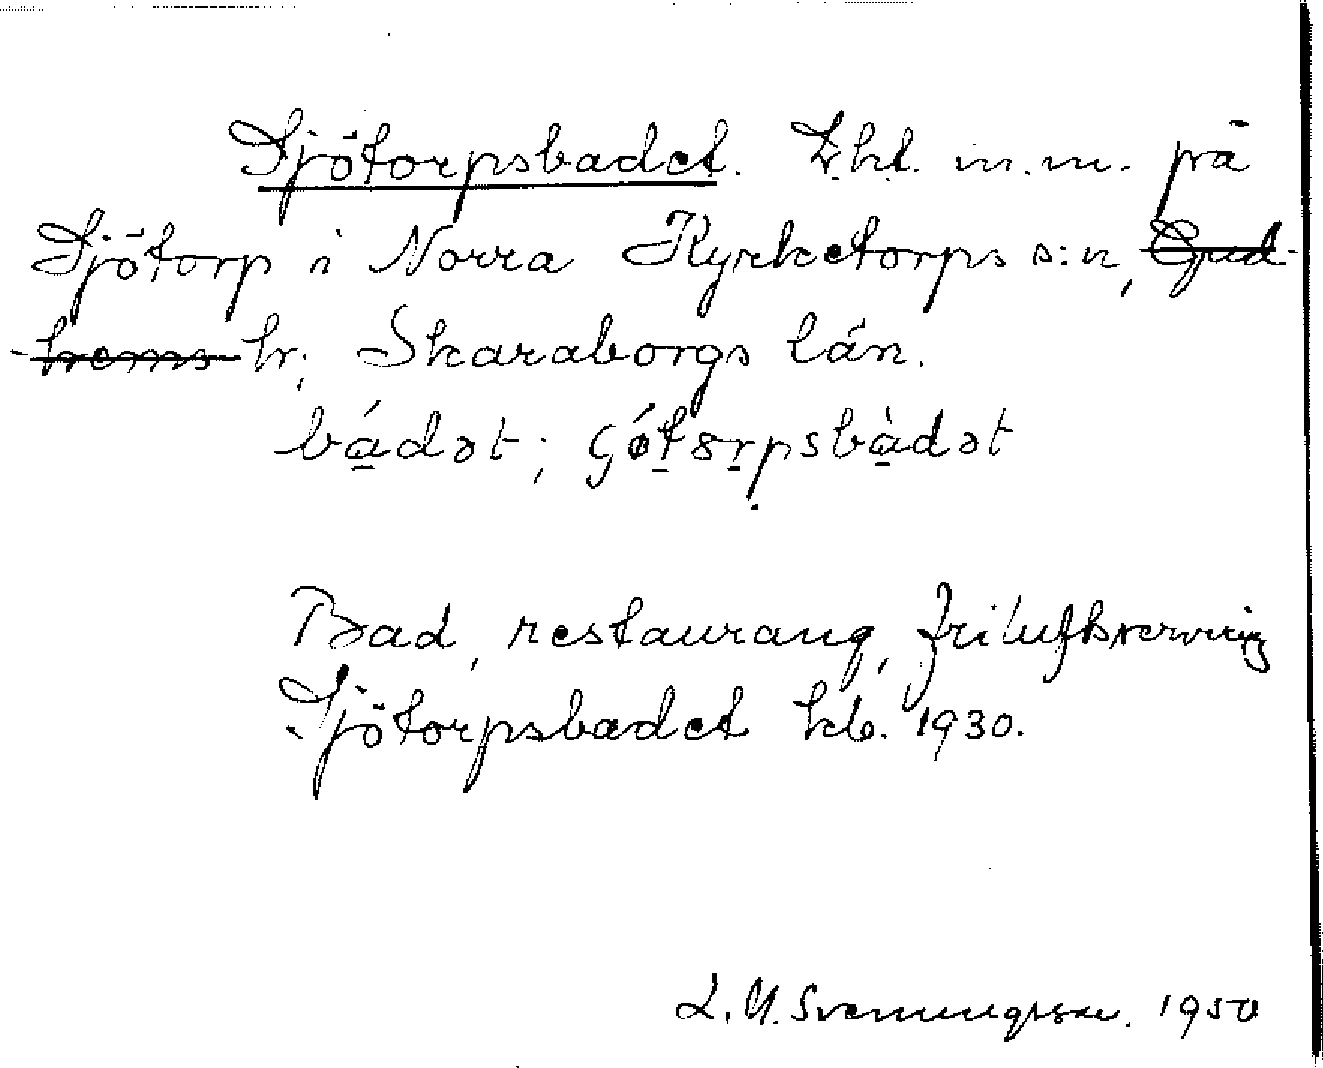 Sjötorpsbadet. Lht. m.m. på
Sjötorp i Norra Kyrketorps s:n, Gud-
-hems hr; Skaraborgs län.
bádət; çǿtɞrpsbàdət
Bad, restaurang, friluftsservering
Sjötorpsbadet kb. 1930.
S. Svenningsson. 1950